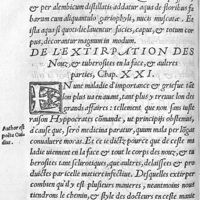 & per alembicum distillatis addatur aqua de floribus fa
barum cum aliquantulo gariophili, nucis muscatæ. Et
ista aqua si quotidie lauetur facies, caput, & totum cor
pus, decoratur magnum in modum.
DE L'EXTIRPATION DES
Nouz, & tuberosites en la face, & aultres
parties, Chap. XXI.
Vne maladie d'importance & griefue tāt
plus vient en auant, tant plus y treuue lon des
grands affaires: tellement que non sans iuste
raison Hyppocrates cōmande, ut principijs obstemus,
à cause que, serò medicina paratur, quum mala per lōgas
conualuere moras. Et ie te dis cecy à cause que de ceste ma
ladie uiennent en la face & tout le corps des nouz, & tu
bercules tant sclerotiques, que aultres, delaissés & pro
duictes par icelle matiere infectiue. Desquelles extirper
combien qu'il y est plusieurs manieres, neantmoins nous
tiendrons le chemin, & style des docteurs en ceste mani
Author est
poëta Oui
dius.